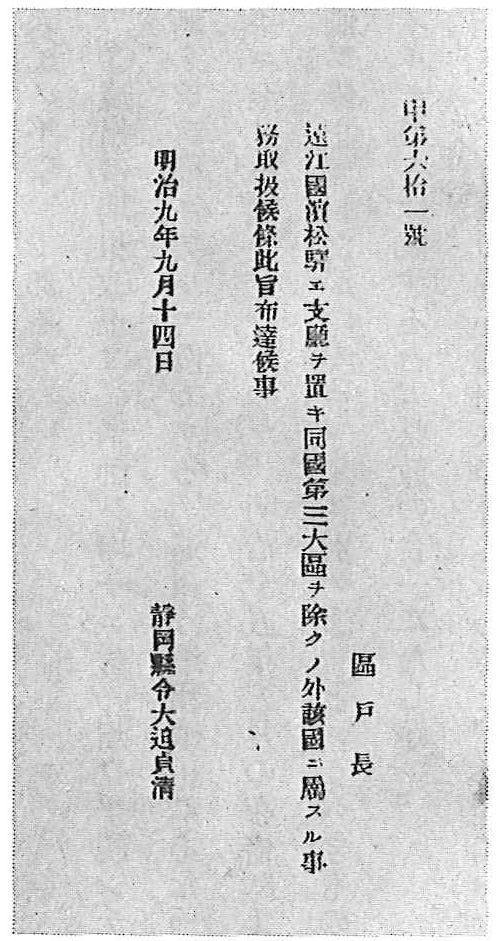 甲第六拾一號
區戸長
遠江國濱松驛エ支廳ヲ置キ同國第三大區ヲ除クノ外該國ニ屬スル事
務取扱候條此旨布達候事
明治九年九月十四日
靜岡縣令大迫貞清